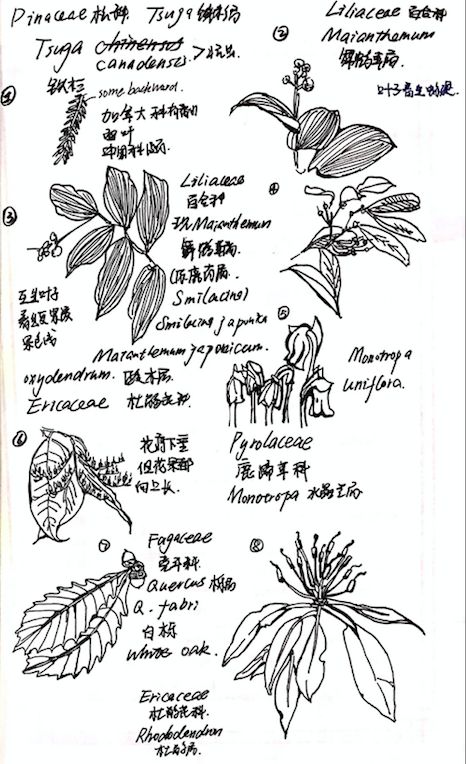 Pinaceae 松科. Tsuga 铁杉属
Tsuga chinensis
canadensis.
①
铁杉
some backward.
加拿大
②
Liliaceae 百合科
Maianthemum
舞鹤草属
③
Liliaceae
百合科
Maianthemum
舞鹤草属
(原鹿药属
Smilacina)
Smilacina japonica
Maianthemum japonicum.
互生叶子
④
oxydendrum. 酸木属
Ericaceae 杜鹃花科
⑤
Monotropa
uniflora.
Pyrolaceae
鹿蹄草科
Monotropa 水晶兰属
⑥
花序下垂
但花果都
向上长.
⑦
Fagaceae
壳斗科.
Quercus 栎属
Q. fabri
白栎
White oak.
⑧
Ericaceae
杜鹃花科.
Rhododendron
杜鹃属.